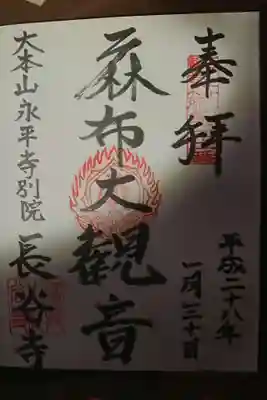 奉拜
平成二十八年
一月三十日
麻布大觀音
大本山永平寺別院
長谷寺